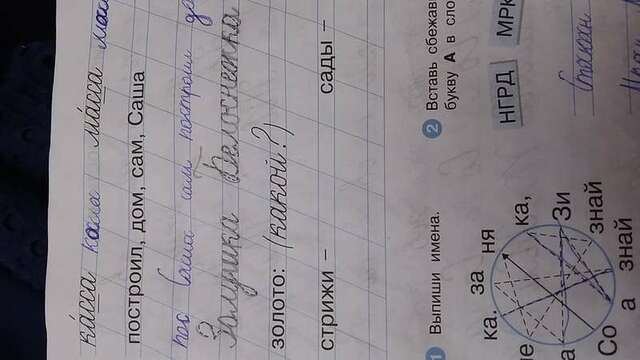 ка́сса касса ма́сса масса
построил, дом, сам, Саша
Саша сам построил
Золушка Белоснежка
золото: (какой?)
стрижи – сады –
1 Выпиши имена.
ка. за ня ка, Зи знай
а Со а знай
2 Вставь сбежав
букву А в сло
НГРД МРК